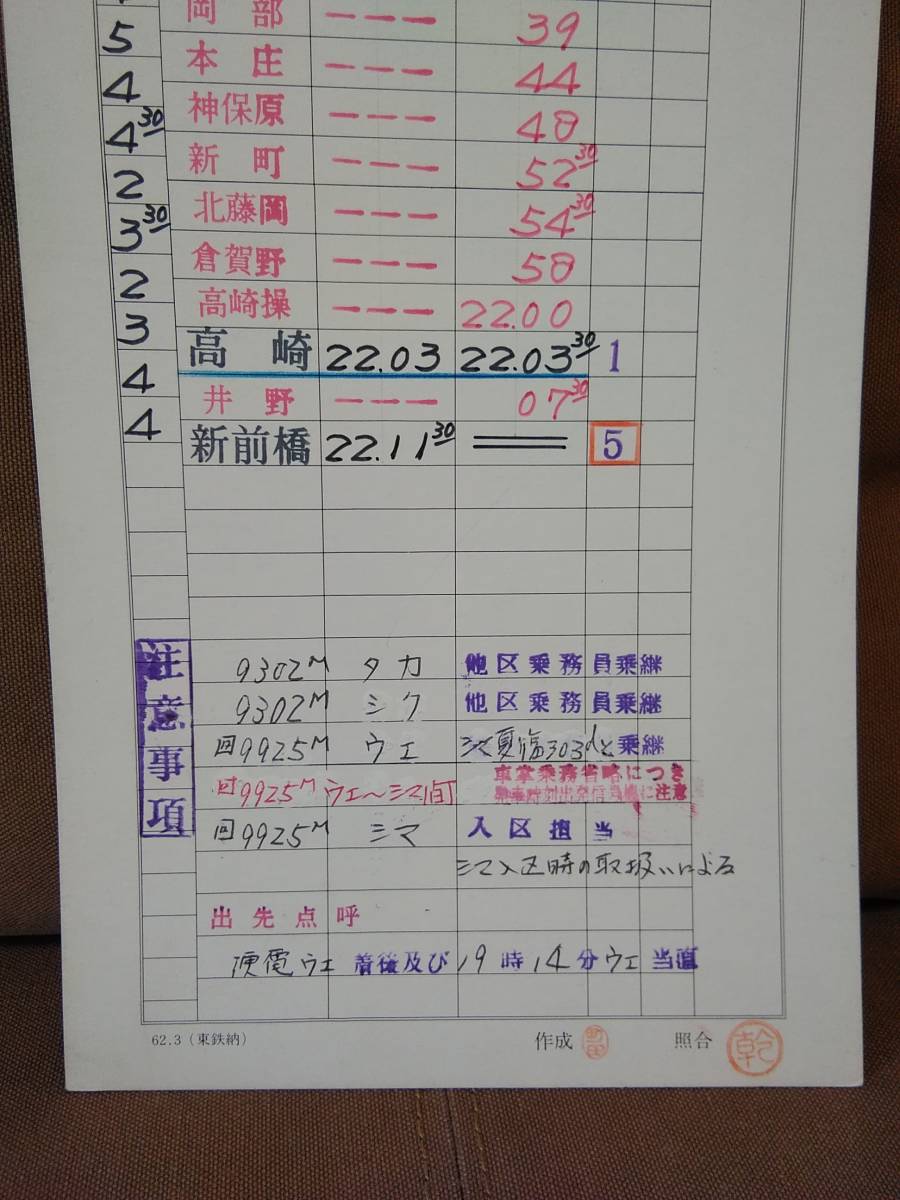 岡部 --- 39
5
本庄 --- 44
4
神保原 --- 48
4 30
新町 --- 52 30
2
北藤岡 --- 54 30
3 30
倉賀野 --- 58
2
高崎操 --- 22.00
3
高崎 22.03 22.03 30 1
4
井野 --- 07 30
4
新前橋 22.11 30 ══ 5
注意事項
9302M タカ 他区乗務員乗継
9302M シク 他区乗務員乗継
回9925M ウエ シマ夏臨303dと乗継
回9925M ウエ〜シマ間 車掌乗務省略につき
発車時刻出発信号機に注意
回9925M シマ 入区担当
シマ入区時の取扱いによる
出先点呼
便電ウエ 着後及び 19時14分ウエ当直
62.3(東鉄納) 作成 町田 照合 乾